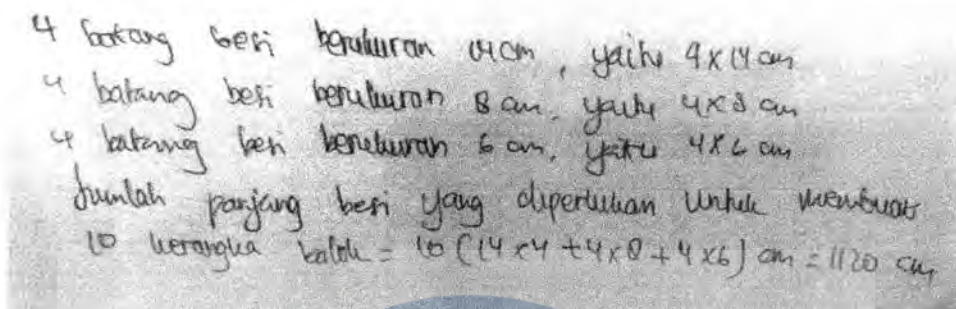 4 batang besi berukuran 14 cm, yaitu 4 x 14 cm
4 batang besi berukuran 8 cm, yaitu 4 x 8 cm
4 batang besi berukuran 6 cm, yaitu 4 x 6 cm
Jumlah panjang besi yang diperlukan untuk membuat
10 kerangka balok = 10 (14 x 4 + 4 x 8 + 4 x 6) cm = 1120 cm